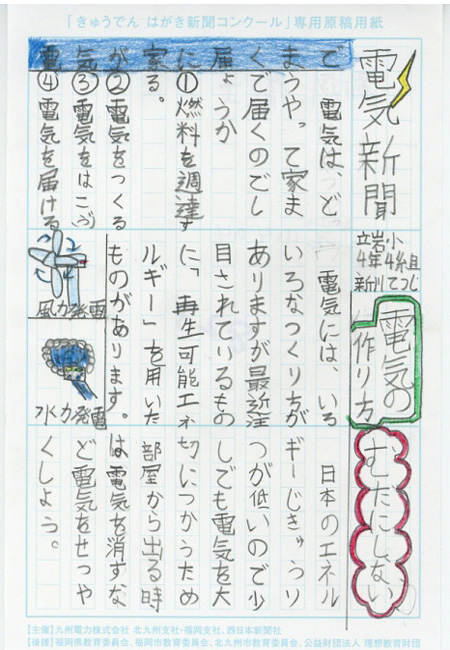 「きゅうでん はがき新聞コンクール」専用原稿用紙
電気新聞
立岩小
4年4組
新川てつじ
電気が家に届くまで
電気は、ど
うやって家ま
で届くのでし
ょうか
①燃料を調達す
る。
②電気をつくる
③電気をはこぶ
④電気を届ける
電気の
作り方
電気には、いろ
いろなつくり方が
ありますが最近注
目されているもの
に「再生可能エネ
ルギー」を用いた
ものがあります。
風力発電
水力発電
むだにしない
日本のエネル
ギーじきゅうり
つが低いので少
しでも電気を大
切につかうため
部屋から出る時
は電気を消すな
ど電気をせつや
くしよう。
【主催】九州電力株式会社 北九州支社・福岡支社、西日本新聞社
【後援】福岡県教育委員会、福岡市教育委員会、北九州市教育委員会、公益財団法人 理想教育財団